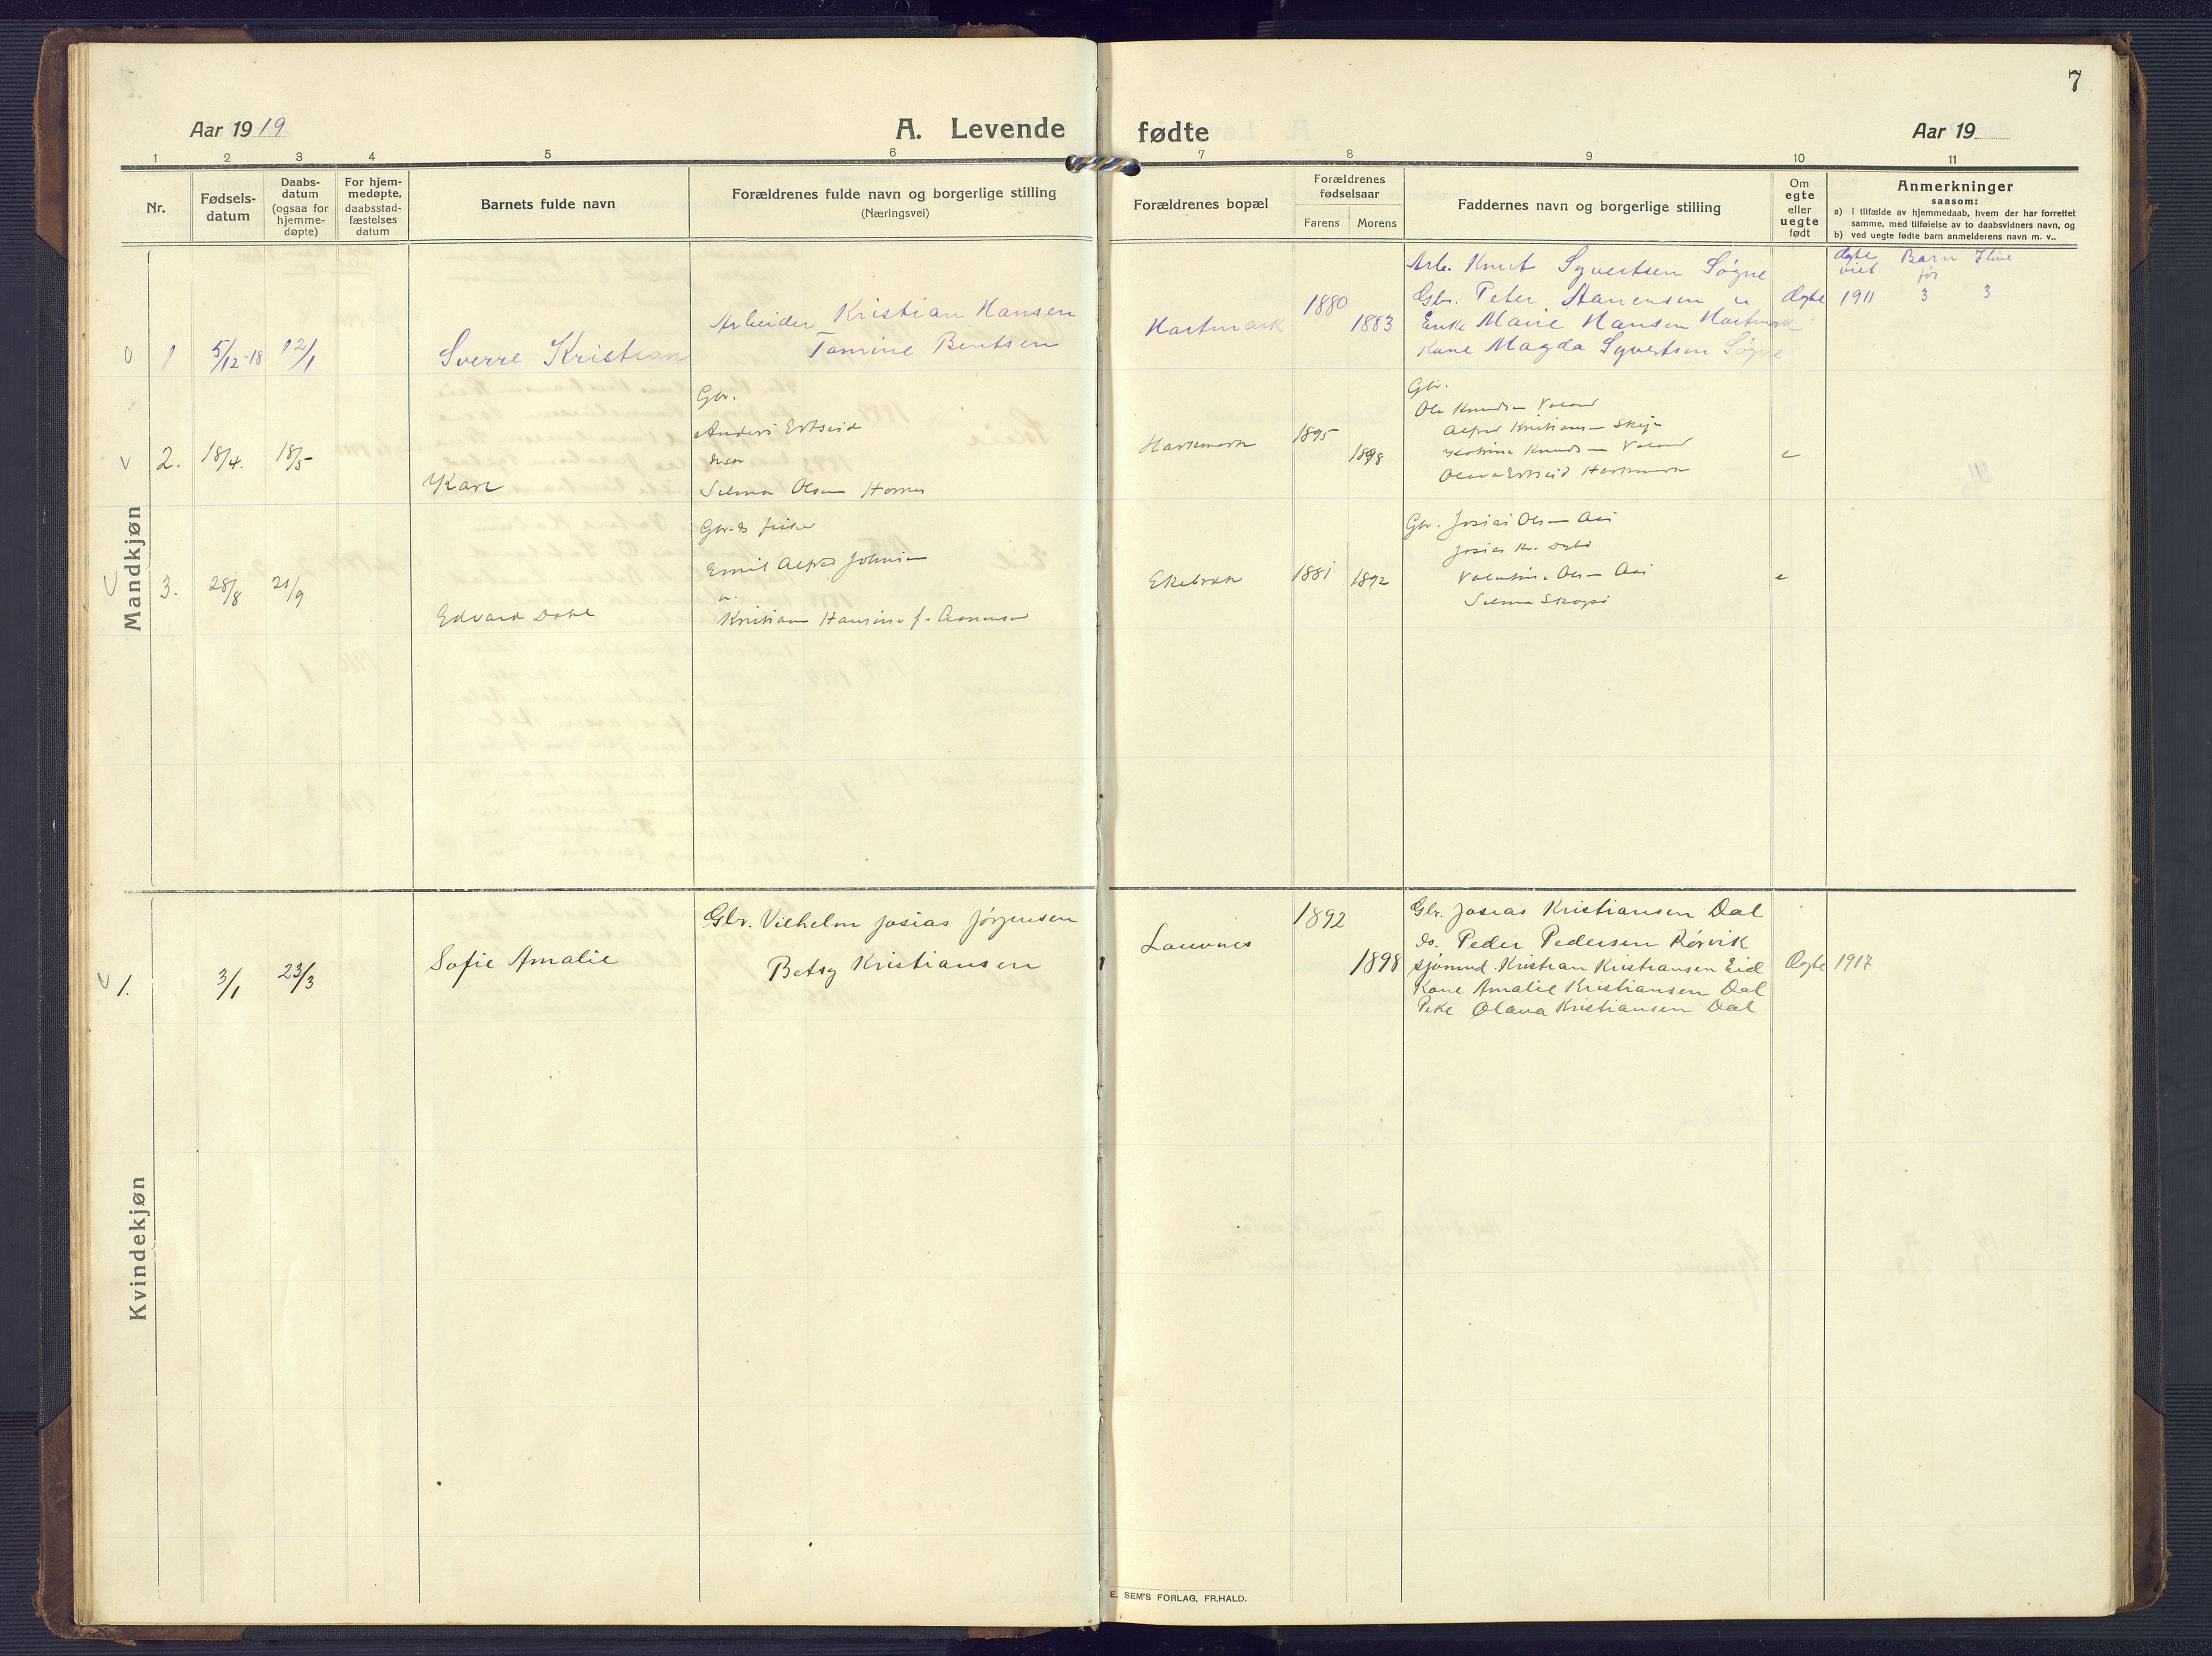 7
Aar 1919
A. Levende fødte
Aar 19
1 2 3 4 5 6 7 8 9 10 11
Nr.
Fødsels-
datum
Daabs-
datum
(ogsaa for
hjemme-
døpte)
For hjem-
medøpte,
daabsstad-
fæstelses
datum
Barnets fulde navn
Forældrenes fulde navn og borgerlige stilling
(Næringsvei)
Forældrenes bopæl
Forældrenes
fødselsaar
Farens Morens
Faddernes navn og borgerlige stilling
Om
egte
eller
uegte
født
Anmerkninger
saasom:
a) i tilfælde av hjemmedaab, hvem der har forrettet
samme, med tilføielse av to daabsvidners navn, og
b) ved uegte fødte barn anmelderens navn m. v..
Mandkjøn
1 5/12-18 12/1
Sverre Kristian
Arbeider Kristian Hansen
Tomine Bentsen
Hartmark
1880
1883
Arb. Knut Syvertsen Søgne
Gbr. Peter Aanensen "
Enke Marie Hansen Hartmark
Kone Magda Syvertsen Søgne
Ægte
Ægte Barn Ilive
viet før
1911 3 3
2. 18/4. 18/5
Kare
Gbr.
Anders
Selma Olsen
Harkmark
1895
1898
Gbr.
Ole Knudsen
Alfred Kristiansen
Knudsen
Harkmark
e
3. 28/8 21/9
Edvard Dahl
Gbr. & fisker
Emil Alfred Johnsen
Kristiane Hansine f. Aanensen
1881 1892
Gbr. Josias Olsen
Josias K.
Olsen
Selma
e
Kvindekjøn
1. 3/1 23/3
Sofie Amalie
Gbr. Vilhelm Josias Jørgensen
Betsy Kristiansen
Lauvnes
1892
1898
Gbr. Josias Kristiansen Dal
Do. Peder Pedersen Rørvik
Sjømnd. Kristian Kristiansen Eid
Kone Amalie Kristiansen Dal
Pike Olava Kristiansen Dal
Ægte 1917
E. SEM'S FORLAG, FR.HALD.